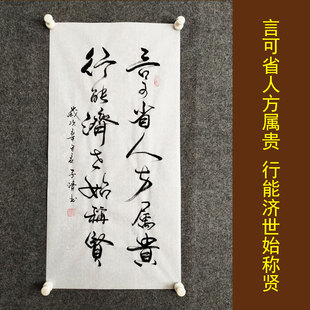 言可省人方属贵
行能濟世始稱賢
言可省人方属贵 行能济世始称贤